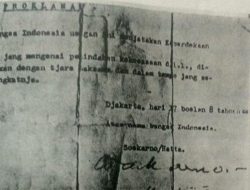 PROKLAMASI
Indonesia dengan ini menjatakan Kemerdekaan
jang mengenai pemindahan kekoeasaan d.l.l., di-
dengan tjara saksama dan dalam tempo jang se-
Djakarta, hari 17 boelan 8 tahoen
Atas nama bangsa Indonesia.
Soekarno/Hatta.